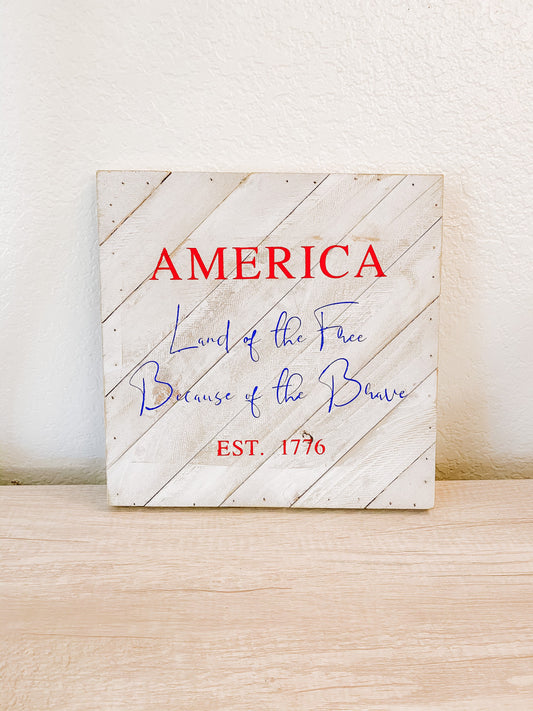 AMERICA
Land of the Free
Because of the Brave
EST. 1776